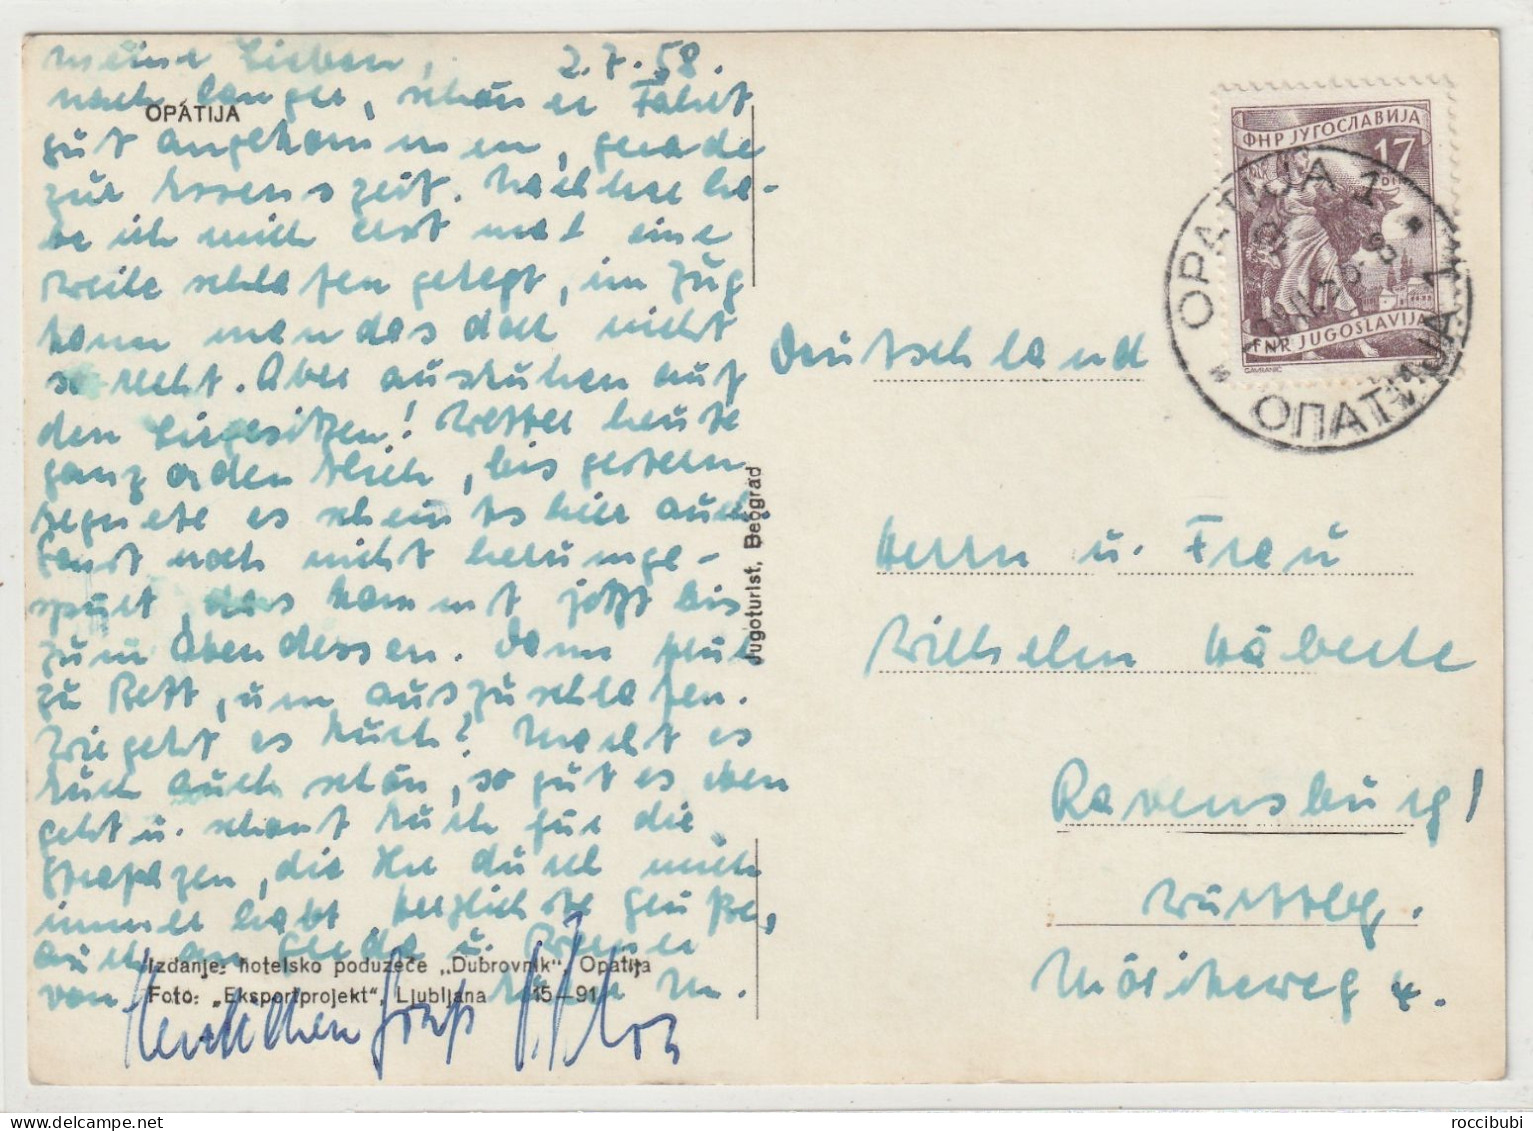 meine Lieben, 2.7.58.
OPATIJA
nach langer, schöner Fahrt
gut angekommen, gerade
zur Essenszeit. Nachher ha-
be ich mich erst mal eine
Weile schlafen gelegt, im Zug
kann man das doch nicht
so recht. Aber ausruhen auf
den Liegesitzen! Wetter heute
ganz ordentlich, bis gestern
regnete es scheints hier auch.
Sonst noch nicht herumge-
spült, das kommt jetzt bis
zum Abendessen. Dann
zu Bett, um auszuschlafen.
Wie geht es Euch? Macht es
Euch auch schön, so gut es eben
geht u. schont Euch für die
Strapazen, die Ihr durch mich
immer habt. Herzlichste Grüße,
auch an u.
von M.
Herzlichen Gruß
Izdanje: hotelsko poduzeće „Dubrovnik“, Opatija
Foto: „Eksportprojekt“, Ljubljana 15—91
Jugoturist, Beograd
ФНР ЈУГОСЛАВИЈА
17
DIN
FNR JUGOSLAVIJA
GAVRANIĆ
OPATIJA 1
ОПАТИЈА 1
Deutschland
Herrn u. Frau
Wilhelm Häberle
Ravensburg!
Württbg.
4.
roccibubi